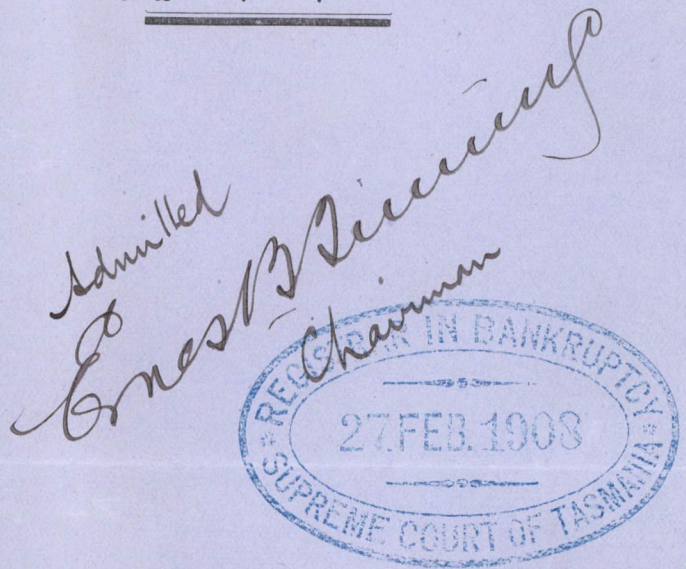 Admitted
Ernest B
Chairman
REGISTRAR IN BANKRUPTCY
27. FEB. 1908
SUPREME COURT OF TASMANIA